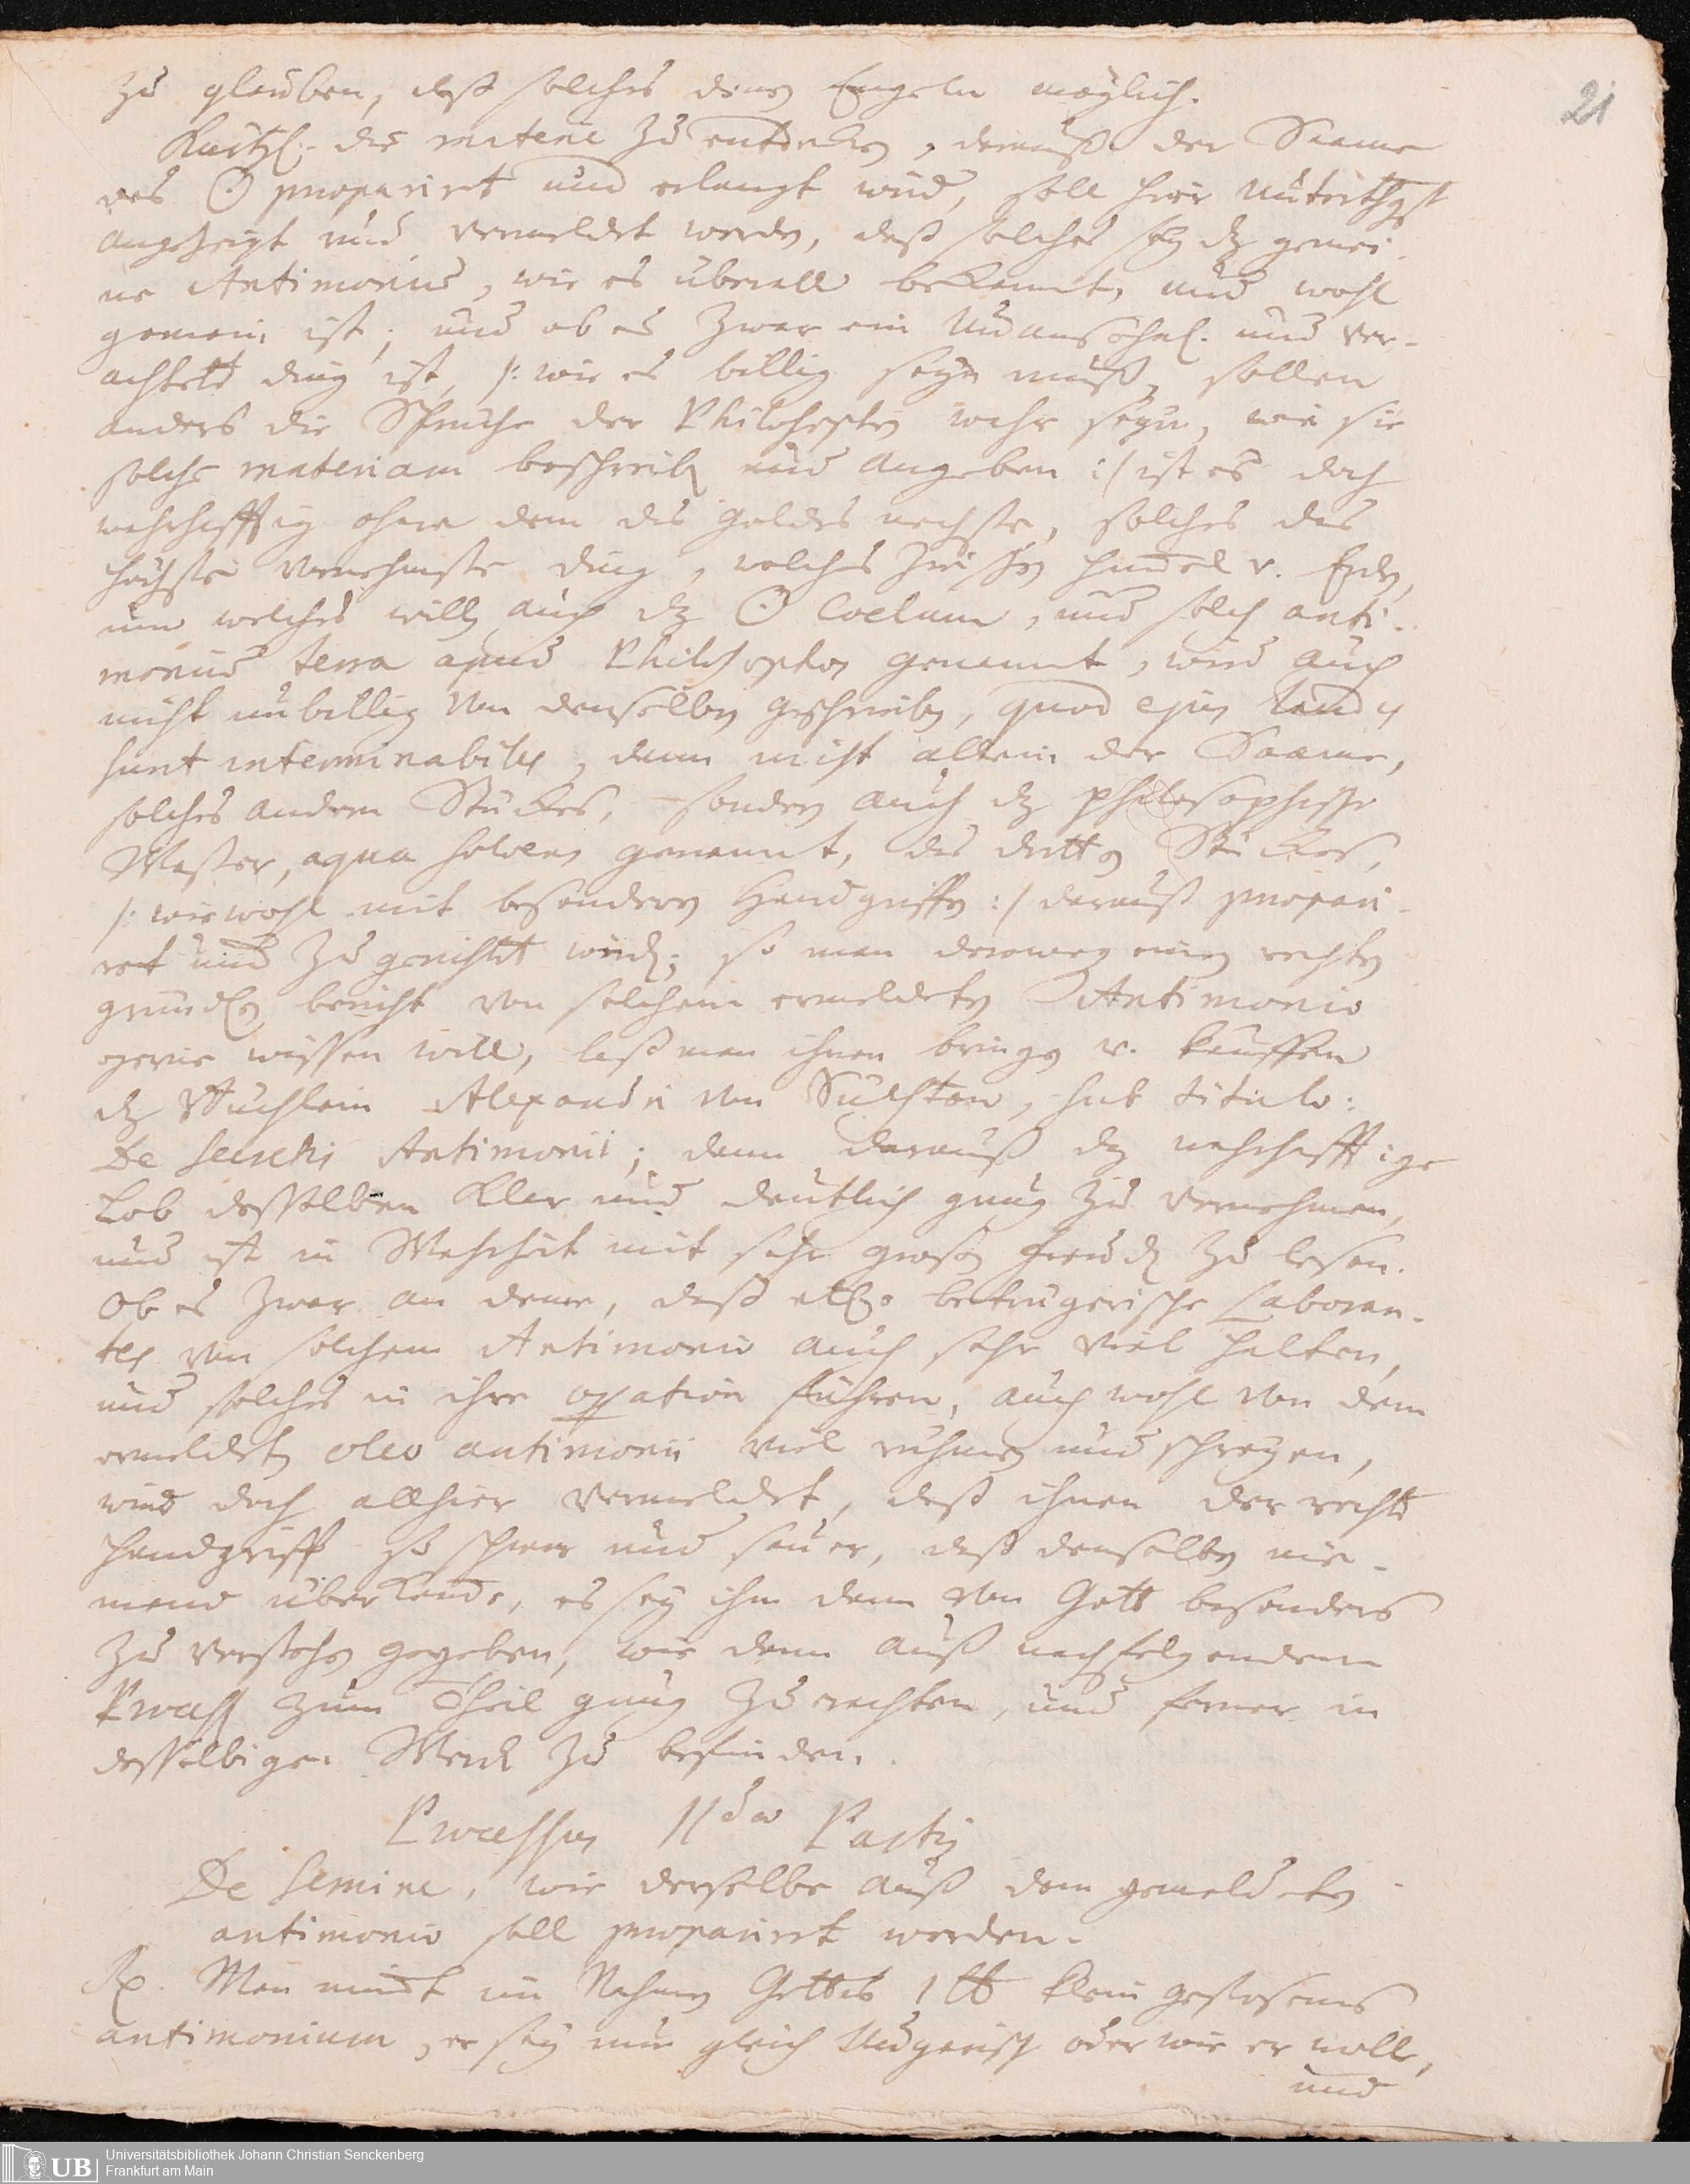 21
zu glauben, daß solches denen Engeln möglich.
die materie zu entdecken, darauß der Saame
des ☉ praepariret und erlangt wird, soll hier
angezeigt und vermeldet werden, daß solches sey dz gemei-
ne Antimonium, wie es überall bekannt, und wohl
gemein ist; und ob es zwar ein Unansehnl. und ver-
achtetes ding ist, /: wie es billig seyn muß, sollen
anders die Sprüche der Philosophen wahr seyn, wie sie
solche materiam beschreiben und angeben :/ ist es doch
wahrhafftig ohne dem des Goldes nechste, solches das
höchste vornehmste ding, welches zwischen Himmel v. Erden,
um welches willen auch dz ☉ Coelum, und solch anti-
monium terra apud Philosophos genannt, wird auch
nicht unbillig von denselben geschrieben, quod ejus laudes
sunt interminabiles, denn nicht allein der Saame,
solches andern Stückes, sondern auch dz philosophische
Waßer, aqua solvens genannt, des dritten Stückes,
/: wiewohl mit besondern Handgriffen :/ darauß praepari-
ret und zugerichtet wird; so man derowegen einen rechten
bericht von solchem vermeldeten Antimonio
gerne wissen will, laß man ihnen bringen v. kauffen
dz Büchlein Alexandri von Suchten, sub titulo:
De Secretis Antimonii; denn darauß dz wahrhafftige
Lob desselben klar und deutlich gnug zu vernehmen,
und ist in Wahrheit mit sehr großen Freuden zu lesen.
Ob es zwar an deme, daß etl. betrügerische Laboran-
tes von solchem Antimonio auch sehr viel halten,
und solches in ihre operation führen, auch wohl von dem
vermeldten oleo antimonii viel rühmen und schreyen,
wird doch allhier vermeldet, daß ihnen der rechte
Handgriff so schwer und sauer, daß denselben nie-
mand überkomme, es sey ihm denn von Gott besonders
zu verstehen gegeben, wie denn auß nachfolgendem
Process zum Theil gnug zu rachten, und ferner in
desselbigen Werck zu befinden.
Processus IIdae Partis
De Semine, wie derselbe auß dem gemeldeten
antimonio soll praepariret werden.
Rp. Man nimbt im Nahmen Gottes 1 lb klein gestosenes
antimonium, er sey nun gleich Ungarisch oder wie er wolle,
und
UB Universitätsbibliothek Johann Christian Senckenberg
Frankfurt am Main